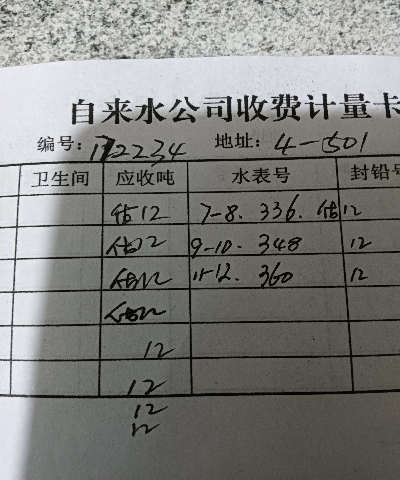 自来水公司收费计量卡
编号: 172234 地址: 4-501
卫生间 应收吨 水表号 封铅号
估12 7-8. 336. 估12
估12 9-10. 348 12
估12 11-12. 360 12
估12
12
12
12
12